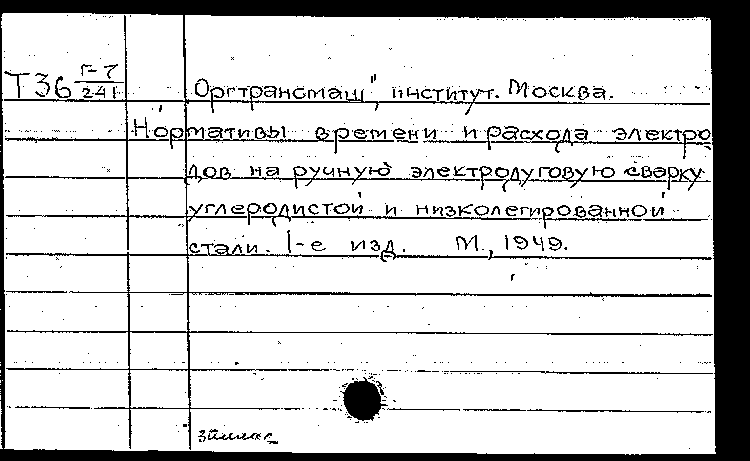 Т36 Г-7/241 Оргтрансмаш", институт. Москва.
Нормативы времени и расхода электро
дов на ручную электродуговую сварку
углеродистой и низколегированной
стали. 1-е изд. М., 1949.